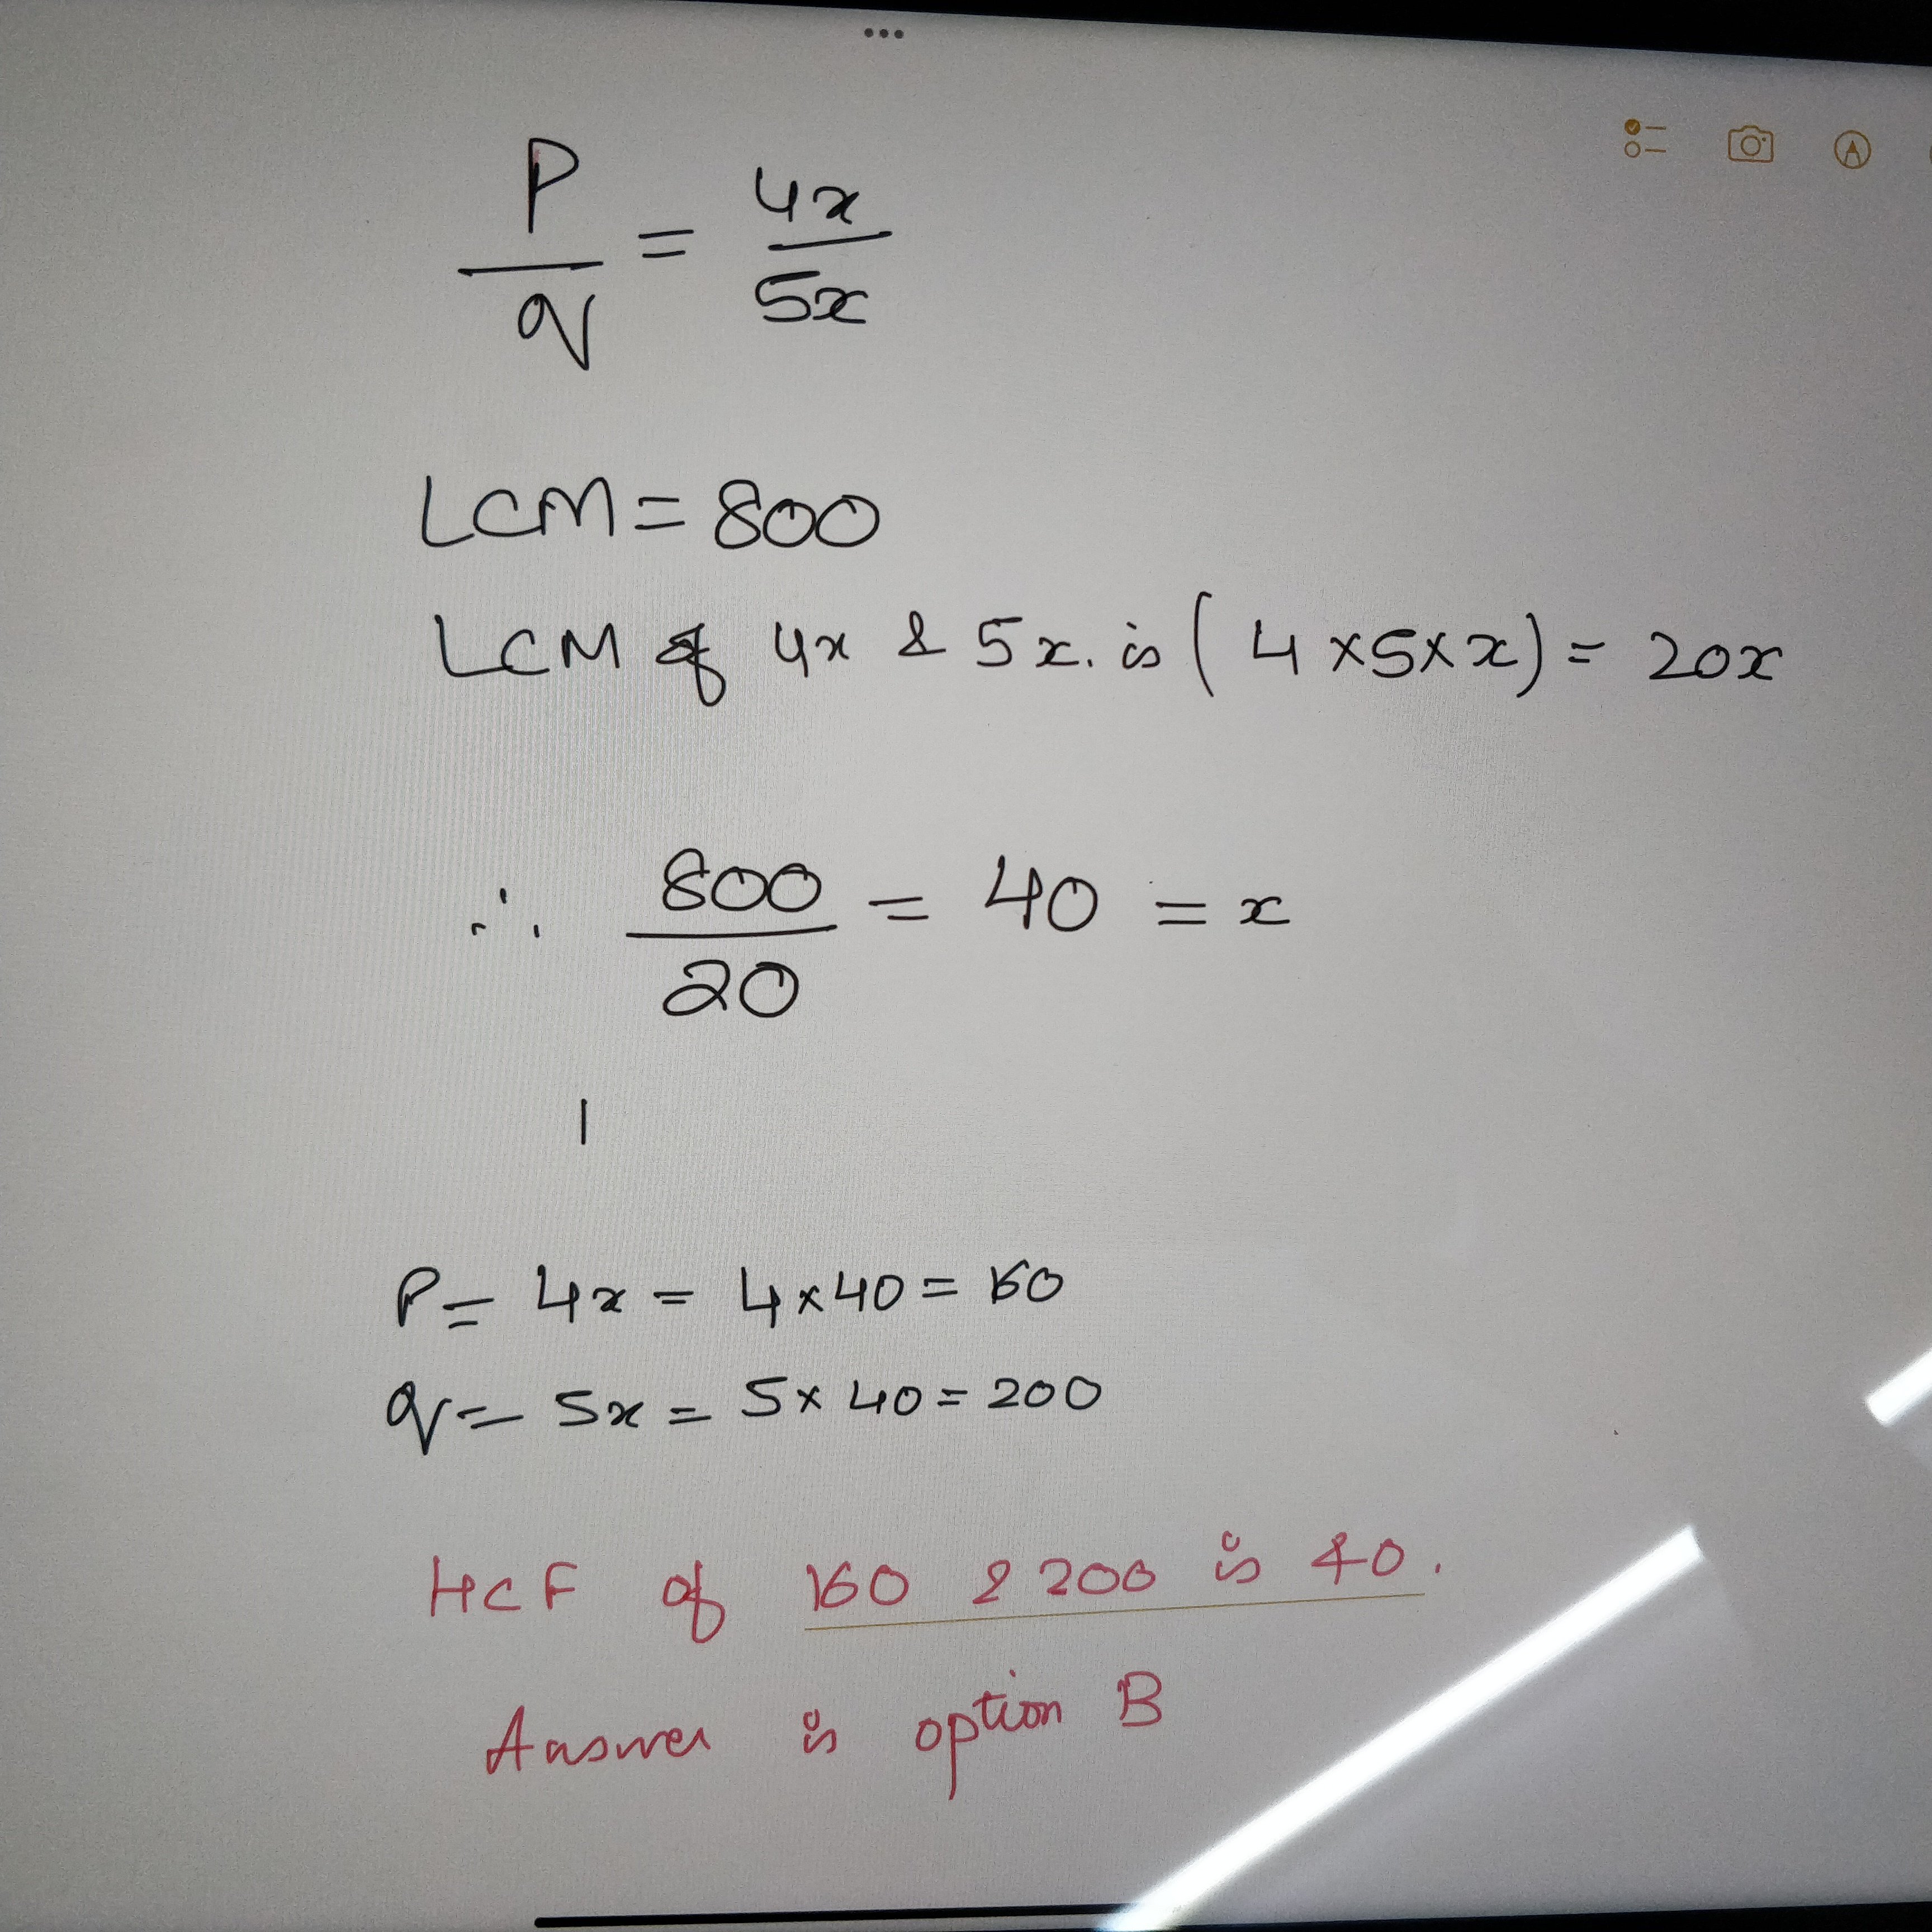 P/q = 4x/5x
LCM = 800
LCM of 4x & 5x. is (4×5×x) = 20x
∴ 800/20 = 40 = x
P = 4x = 4×40 = 160
q = 5x = 5×40 = 200
HCF of 160 & 200 is 40.
Answer is option B